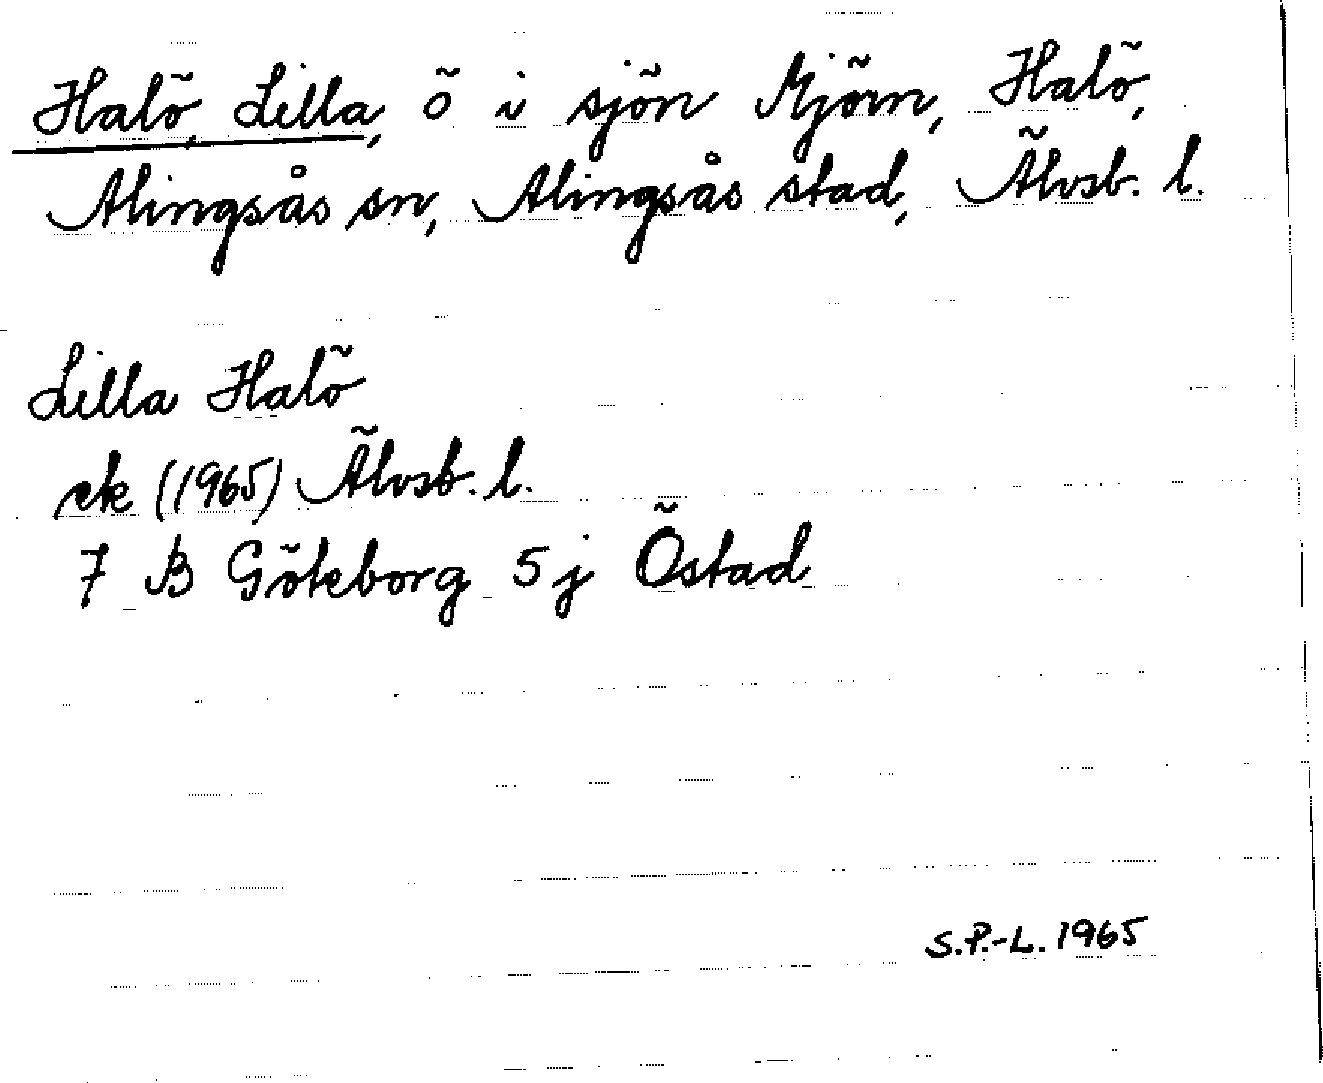 Halö, Lilla, ö i sjön Mjörn, Halö,
Alingsås sn, Alingsås stad, Älvsb. l.
Lilla Halö
ek (1965) Älvsb. l.
7 B Göteborg 5 j Östad
S.P.-L. 1965